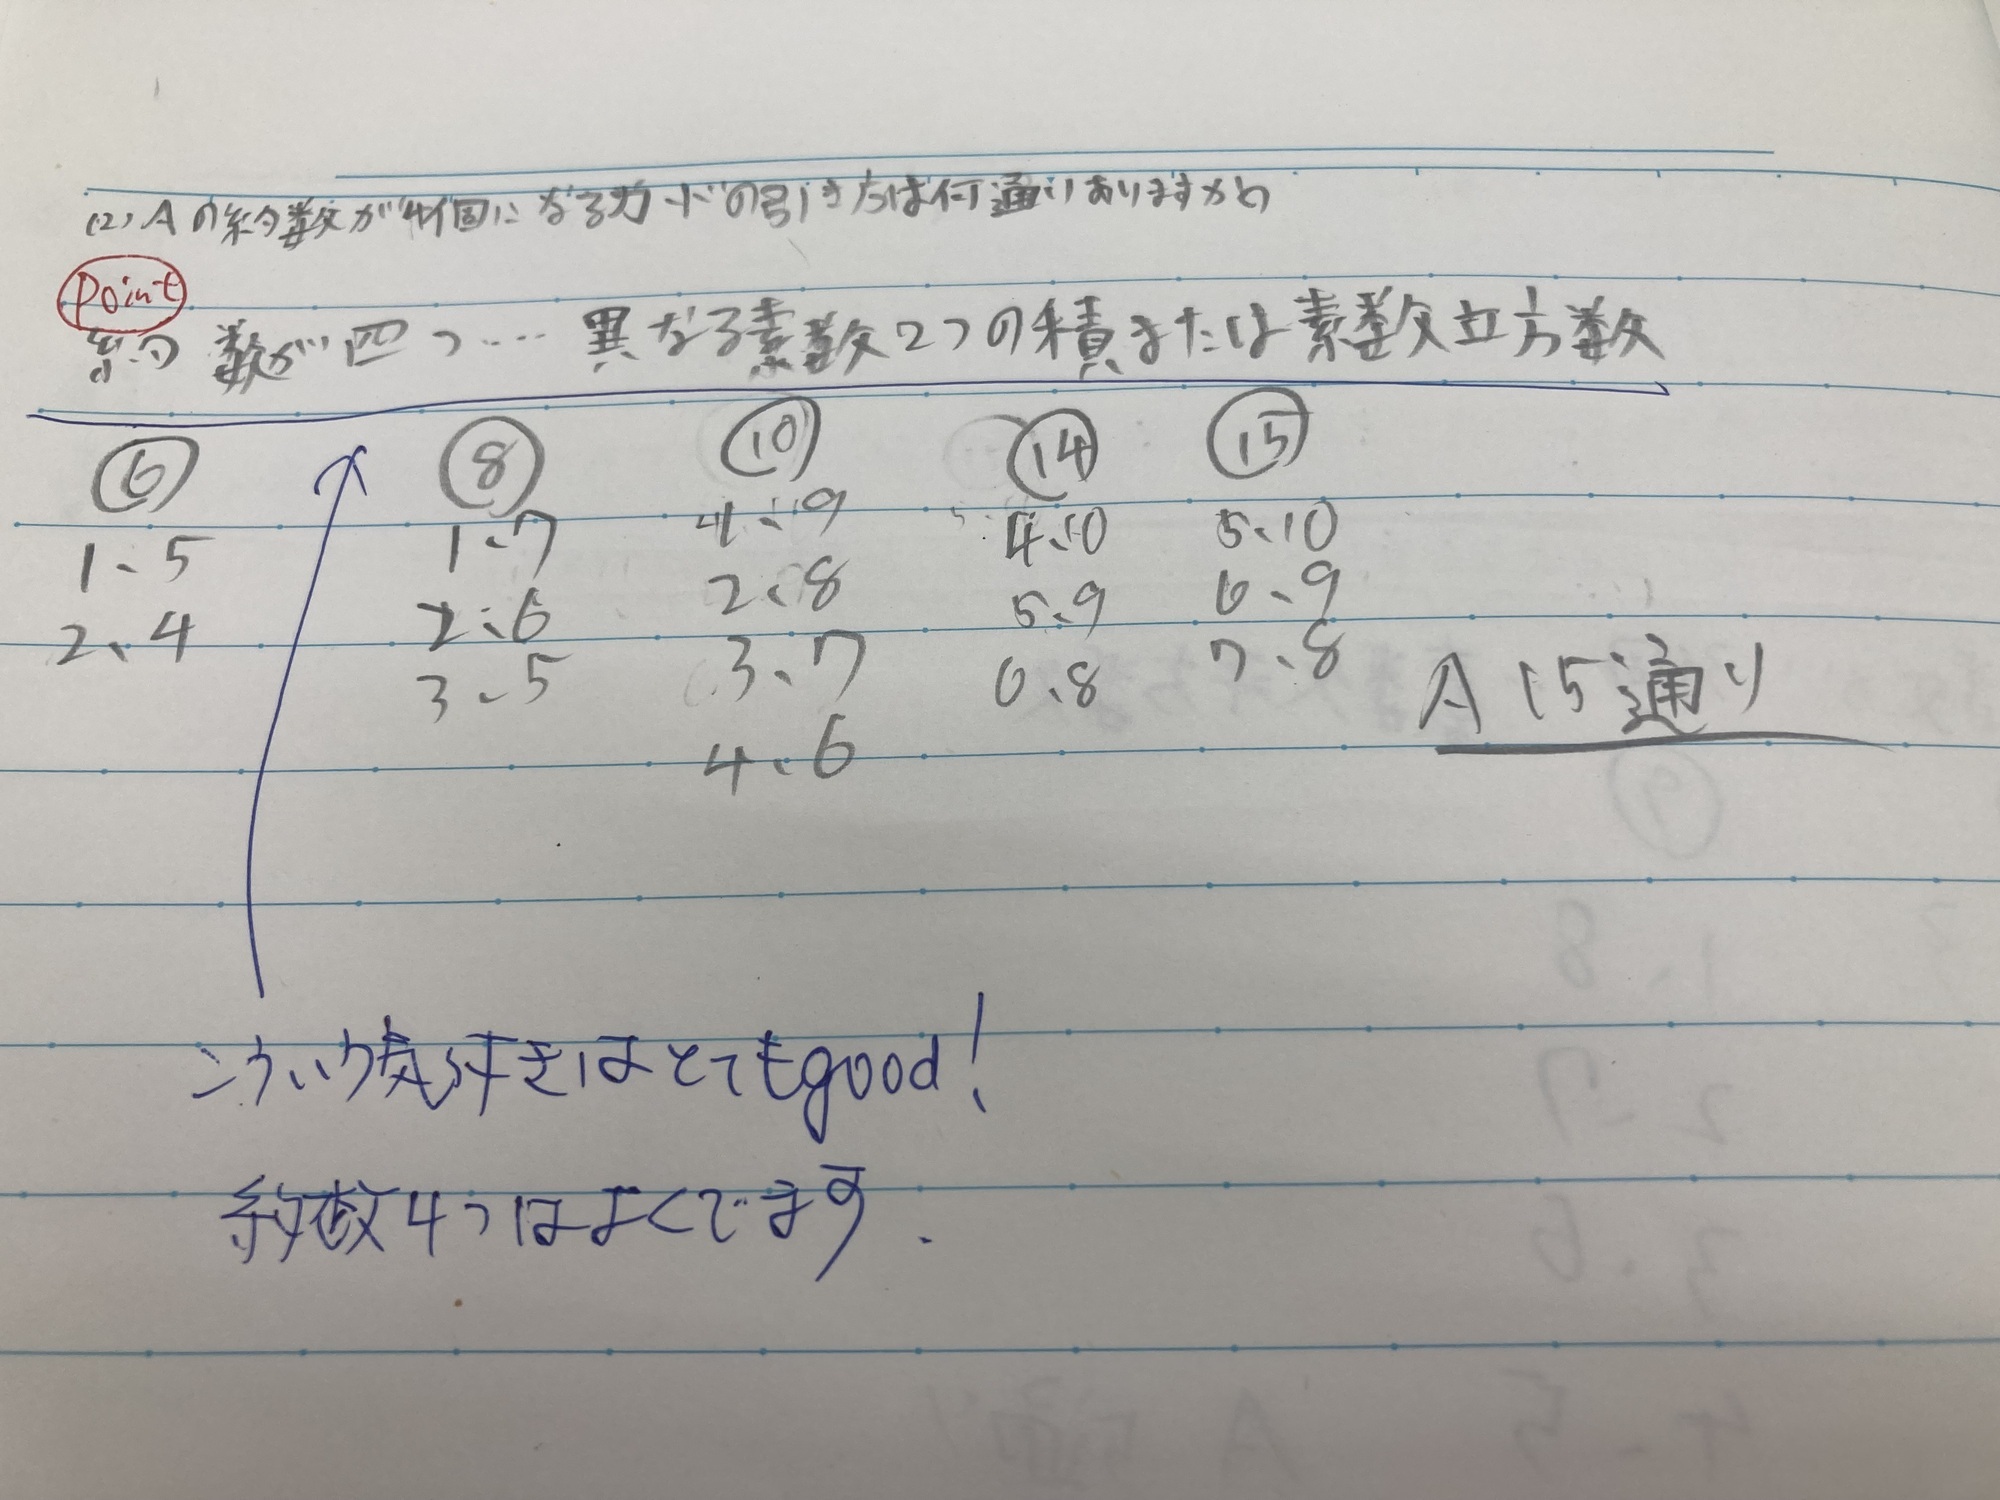 (2) Aの約数が4個になるカードの引き方は何通りありますか。
Point
約数が四つ…異なる素数2つの積または素数立方数
⑥ ⑧ ⑩ ⑭ ⑮
1、5 1、7 4、9 4、10 5、10
2、4 2、6 2、8 5、9 6、9
3、5 3、7 6、8 7、8
4、6
A 15通り
こういう気づきはとてもgood!
約数4つはよくでます.